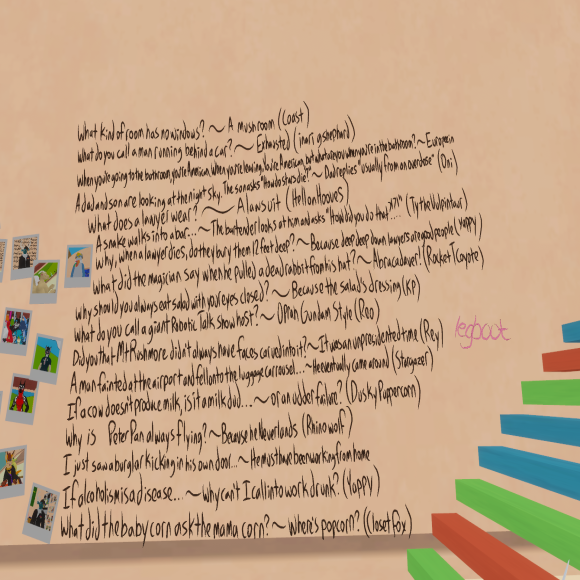 What kind of room has no windows? ~ A mushroom (Coast)
What do you call a man running behind a car? ~ Exhausted (inari g shephard)
When you're going to the bathroom, you're American. When you're leaving, You're American, but what are you when you're in the bathroom? ~ European
A dad and son are looking at the night sky. The son asks "How do stars die?" ~ Dad replies "usually from an overdose" (Oni)
What does a lawyer wear? ~ A lawsuit (Hell on Hooves)
A snake walks into a bar... ~ The bartender looks at him and asks "How'd you do that?!?!" (Ty the Vulpintaur)
Why, when a lawyer dies, do they bury them 12 feet deep? ~ Because deep deep down lawyers are good people (Yappy)
What did the magician say when he pulled a dead rabbit from his hat? ~ Abracadaver! (Rocket T Coyote)
Why should you always eat salad with your eyes closed? ~ Because the salad's dressing (KP)
What do you call a giant Robotic Talk show host? ~ Oprah Gundam Style (Reo)
Did you that Mt Rushmore didn't always have faces carved into it? ~ It was an unpresidented time (Rey)
A man fainted at the airport and fell onto the luggage carrousel... ~ He eventually came around (Stargazer)
If a cow doesn't produce milk, is it a milk dud... ~ or an udder failure? (Dusky Puppercorn)
Why is Peter Pan always flying? ~ Because he Neverlands (Rhinowolf)
I just saw a burglar kicking in his own door... ~ He must have been working from home
If alcoholism is a disease... ~ Why can't I call into work drunk? (Yappy)
What did the baby corn ask the mama corn? ~ Where's popcorn? (Closet Fox)
legboot